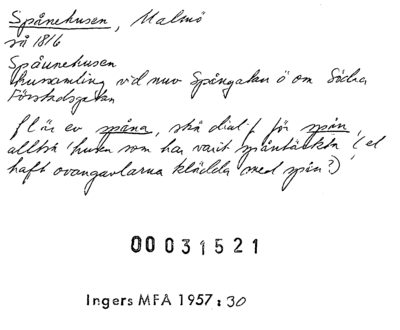 Spånehusen, Malmö
så 1816
Spåunehusen
hussamling vid nuv Spångatan ö om Södra
Förstadsgatan
f l är ev spåna, skå dial f för spån,
alltså 'husen som har varit spåntäckta (el
haft ovangavlarna klädda med spån?)'
00031521
Ingers MFA 1957:30